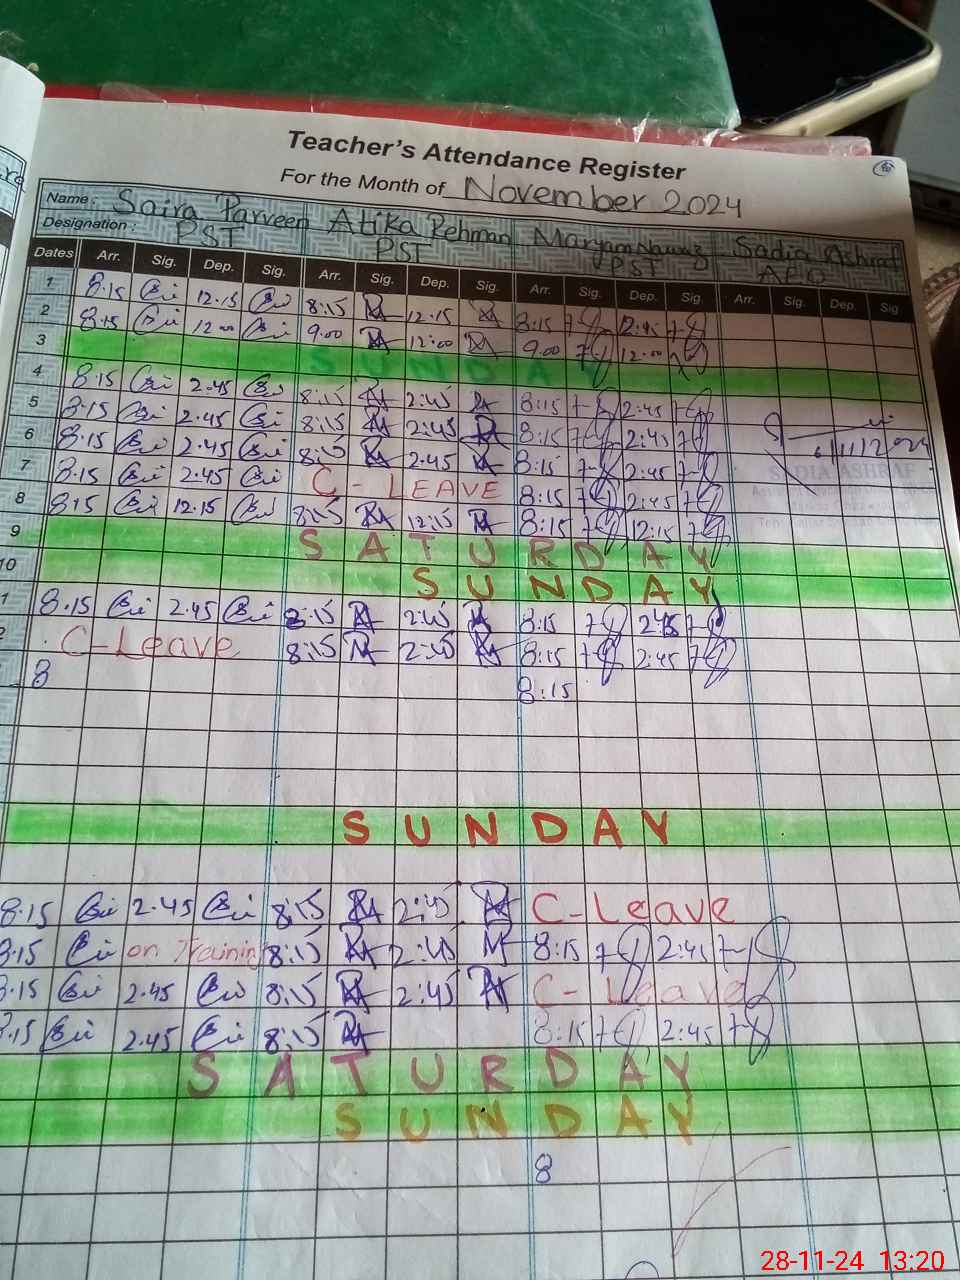 Teacher's Attendance Register
For the Month of November 2024
Name: Saira Parveen Atika Rehman Maryam Nawaz Sadia Ashraf
Designation: PST PST PST AEO
Dates Arr. Sig. Dep. Sig. Arr. Sig. Dep. Sig. Arr. Sig. Dep. Sig. Arr. Sig. Dep. Sig
1 8.15 12.15 8:15 12:15 8:15 12:15
2 8.15 12.00 9.00 12:00 9.00 12:00
3 SUNDA
4 8.15 2.45 8:15 2:45 8:15 2:45
5 8.15 2.45 8:15 2:45 8:15 2:45
6 8.15 2.45 8:15 2:45 8:15 2:45
7 8.15 2.45 C-LEAVE 8:15 2:45
8 8:15 12.15 8:15 12:15 8:15 12:15
6/11/2024
SADIA ASHRAF
9 SATURDAY
10 SUNDAY
1 8.15 2.45 8:15 2:45 8:15 2:45
2 C-Leave 8:15 2:45 8:15 2:45
8 8:15
SUNDAY
8.15 2.45 8:15 2:45 C-Leave
8.15 on Training 8:15 2:45 8:15 2:45
8.15 2.45 8:15 2:45 C-Leave
8.15 2.45 8:15 8:15 2:45
SATURDAY
SUNDAY
8
28-11-24 13:20